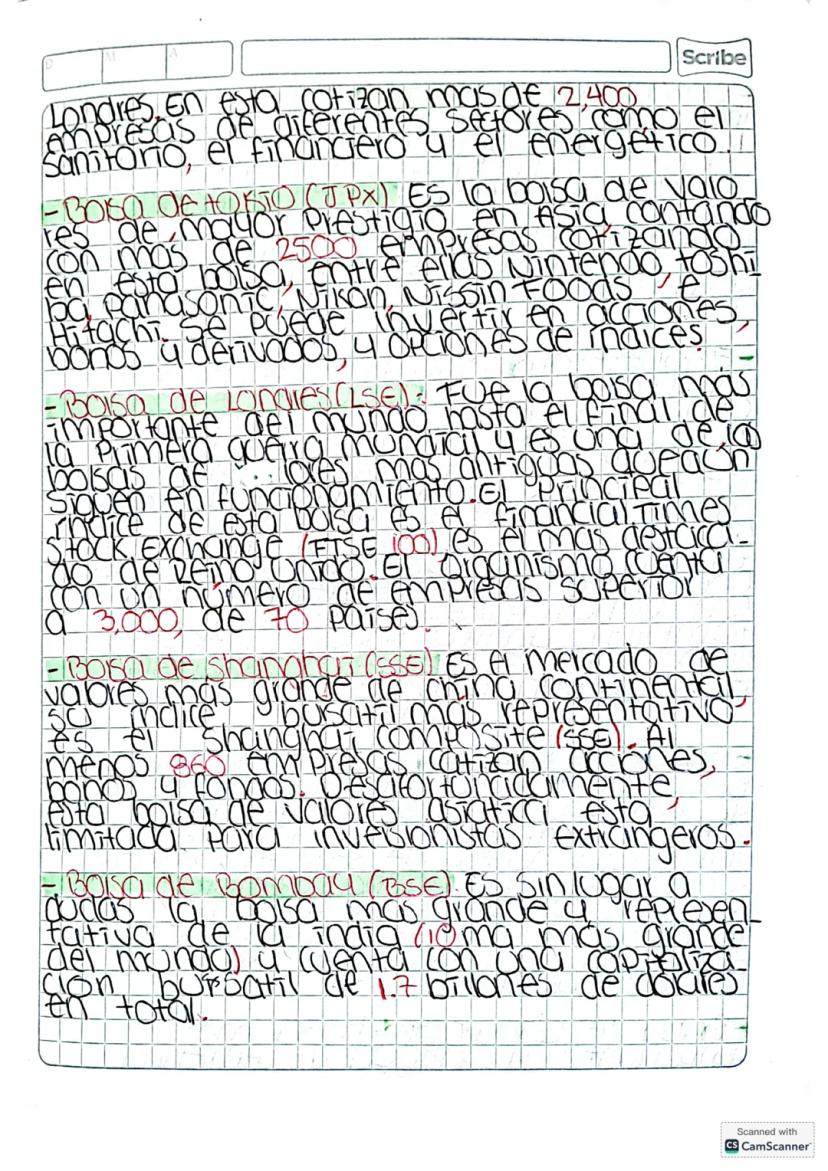 D M A Scribe
Londres. En esta cotizan mas de 2,400
empresas de diferentes sectores como el
sanitario, el financiero y el energético.
- Bolsa de tokio (JPX) Es la bolsa de valo
res de mayor prestigio en Asia, contando
con mas de 2500 empresas cotizando
en esta bolsa, entre ellas Nintendo, toshi_
ba, panasonic, Nikon, Nissin Foods, e
Hitachi. Se puede invertir en acciones,
bonos y derivados, y opciones de índices
- Bolsa de Londres (LSE): Fue la bolsa más
importante del mundo hasta el final de
la Primera guerra mundial y es una de la
bolsas de lores mas antiguas que aún
siguen en funcionamiento. El principal
índice de esta bolsa es el financial Times
Stock Exchange (FTSE 100) es el mas destaca_
do de Reino Unido. El organismo cuenta
con un número de empresas superior
a 3,000, de 70 países.
- Bolsa de shanghai (SSE) Es el mercado de
valores mas grande de china continental,
su indice bursatil más representativo
es el Shanghai composite (SSE). Al
menos 860 empresas catizan acciones,
bonos y fondos. Desafortunadamente,
esta bolsa de valores asiatica esta
limitada para inversionistas extrangeros.
- Bolsa de Bombay (BSE). Es sin lugar a
dudas la bolsa mas grande y represen_
tativa de la india (10ma más grande
del mundo) y cuenta con una capitaliza_
ción bursatil de 1.7 billones de dólares
en total.
Scanned with
CS CamScanner